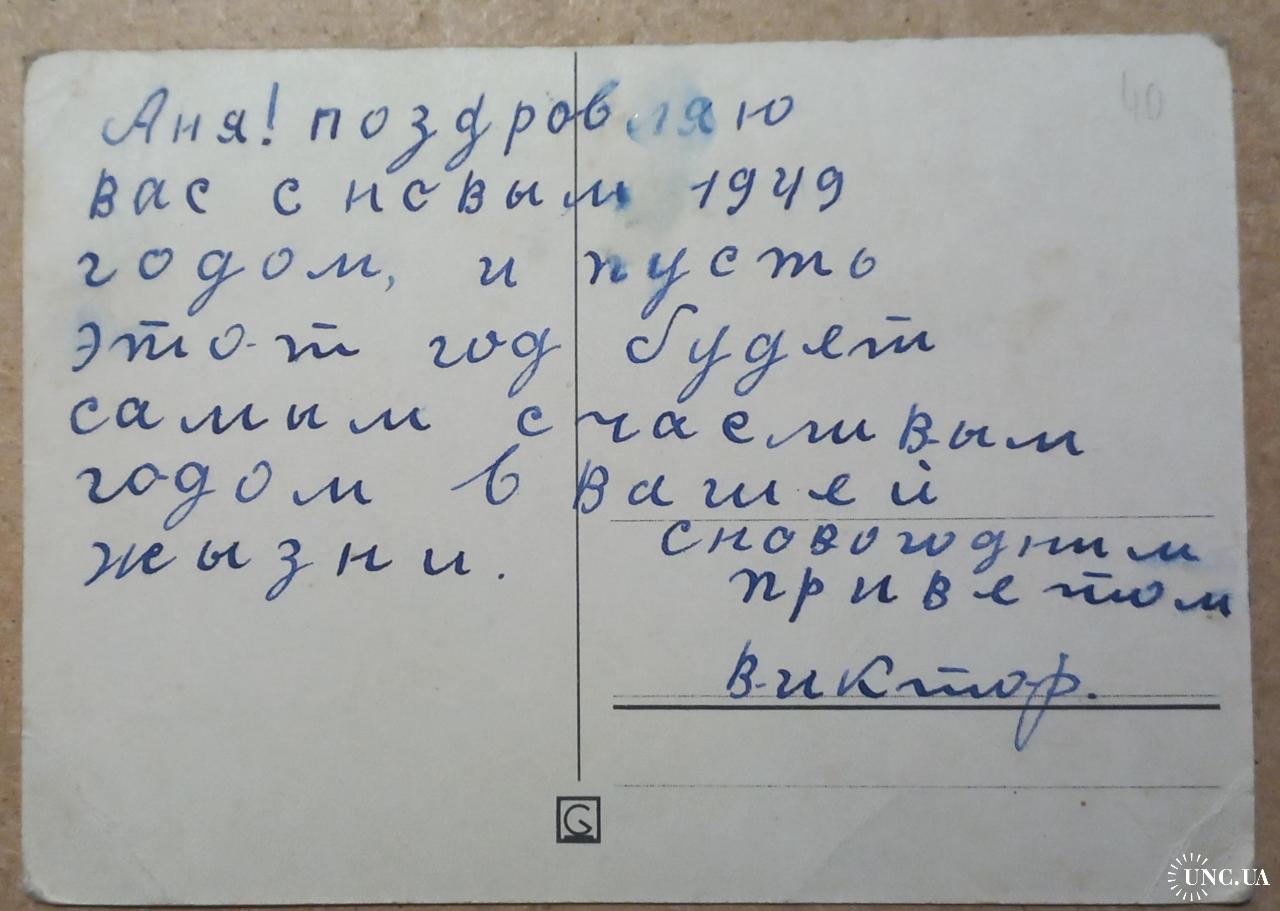 40
Аня! поздровляю
вас с новым 1949
годом, и пусть
этот год будет
самым счасливым
годом в вашей
жызни.
с новогодним
приветом
Виктор.
G
UNC.UA